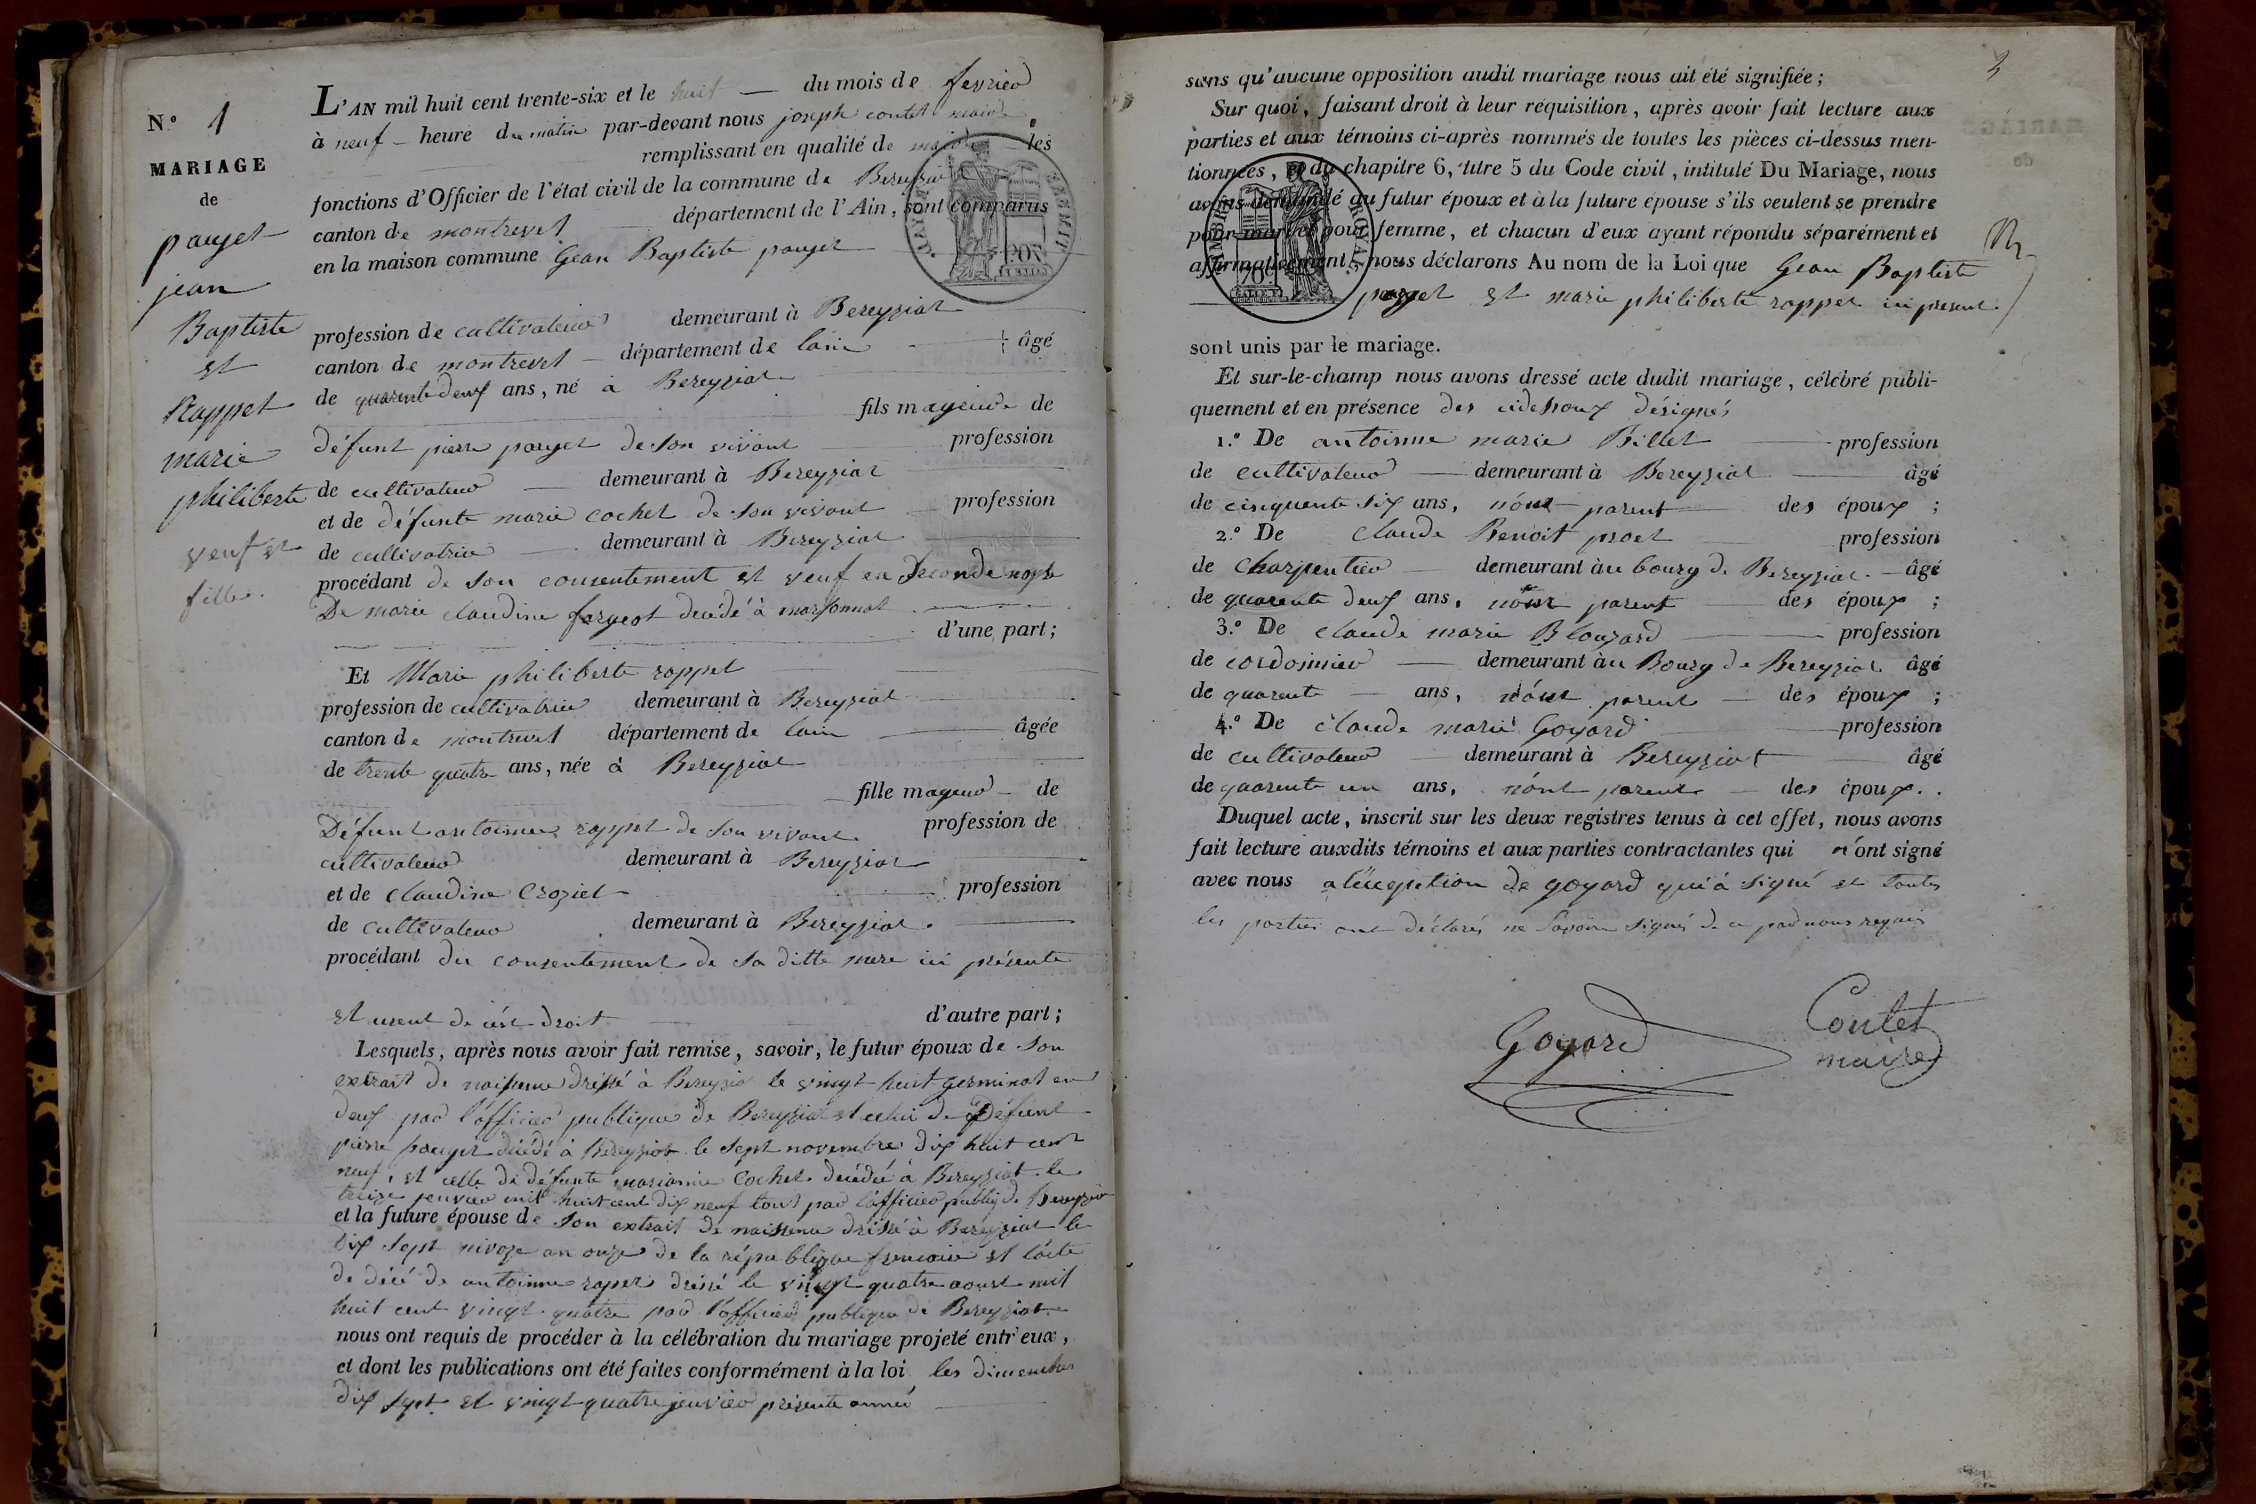 N.° 1
MARIAGE
de
pauget
jean
Baptiste
et
Rappet
marie
philiberte
veuf et
fille.
L'AN mil huit cent trente-six et le huit — du mois de fevrier
à neuf — heure du matin par-devant nous joseph contet maire
remplissant en qualité de maire les
fonctions d'Officier de l'état civil de la commune de Bereyziat
canton de montrevel département de l'Ain, sont comparus
en la maison commune Gean Baptiste pauget
profession de cultivateur demeurant à Bereyziat
canton de montrevel — département de lain âgé
de quarente deux ans, né à Bereyziat
fils mageude de
défunt pierre pauget de son vivant profession
de cultivateur — demeurant à Bereyziat
et de défunte marie cochet de son vivant profession
de cultivatrice — demeurant à Bereyziat
procédant de son consentement et veuf en seconde nopse
De marie claudine fargeot decédé à marsonnat
d'une part;
Et Marie philiberte rappet
profession de cultivatrice demeurant à Bereyziat
canton de montrevel département de lain âgée
de trente quatre ans, née à Bereyziat
fille mageur — de
Défunt antoinne rappet de son vivant profession de
cultivateur demeurant à Bereyziat
et de claudine Croziet profession
de cultivateur demeurant à Bereyziat
procédant du consentement de sa ditte mere ici présente
et usent de cést droit d'autre part;
Lesquels, après nous avoir fait remise, savoir, le futur époux de son
extrait de naissence dréssé à Bereyziat le vingt huit germinal en
deux par l'officier publique de Bereyziat et celui de Défunt
pierre pauget décédé à Bereyziat le sept novembre dix huit cent
neuf, et celle de défunte marianne cochet decédée à Bereyziat le
treize jenvier mil huit cent dix neuf tout par l'officier public de Bereyziat
et la future épouse de son extrait de naissence dréssé à Bereyziat le
dix sept nivoze an onze de la république francaise et lácte
de décé de antoinne rapet dréssé le vingt quatre aoust mil
huit cent vingt quatre par l'officier publique de Bereyziat
nous ont requis de procéder à la célébration du mariage projeté entr'eux,
et dont les publications ont été faites conformément à la loi les dimenches
dix sept et vingt quatre jenvier présente anneé
3
sans qu'aucune opposition audit mariage nous ait été signifiée;
Sur quoi, faisant droit à leur réquisition, après avoir fait lecture aux
parties et aux témoins ci-après nommés de toutes les pièces ci-dessus men-
tionnées, et du chapitre 6, titre 5 du Code civil, intitulé Du Mariage, nous
avons demandé au futur époux et à la future épouse s'ils veulent se prendre
pour mari et pour femme, et chacun d'eux ayant répondu séparément et
affirmativement, nous déclarons Au nom de la Loi que Gean Baptiste
pauget et marie philiberte rappet ici present.
sont unis par le mariage.
Et sur-le-champ nous avons dressé acte dudit mariage, célébré publi-
quement et en présence des cidessoux désignés
1.° De antoinne marie Billet profession
de cultivateur — demeurant à Bereyziat âgé
de cinquente six ans, nónt parent des époux ;
2.° De claude Benoit profession
de Charpentier — demeurant àu bourg de Bereyziat — âgé
de quarente deux ans, nónt parent des époux ;
3.° De claude marie Blouzard profession
de cordonnier — demeurant àu Bourg de Bereyziat âgé
de quarente — ans, nónt parent — des époux ;
4.° De claude marie Goyard profession
de cultivateur — demeurant à Bereyziat âgé
de quarente un ans, nónt parent — des époux.
Duquel acte, inscrit sur les deux registres tenus à cet effet, nous avons
fait lecture auxdits témoins et aux parties contractantes qui n'ont signé
avec nous a léxception de goyard qui à signé et toutes
les parties ont déclarés ne savoir signés de ce par nous requis
Goyard
Contet
maire